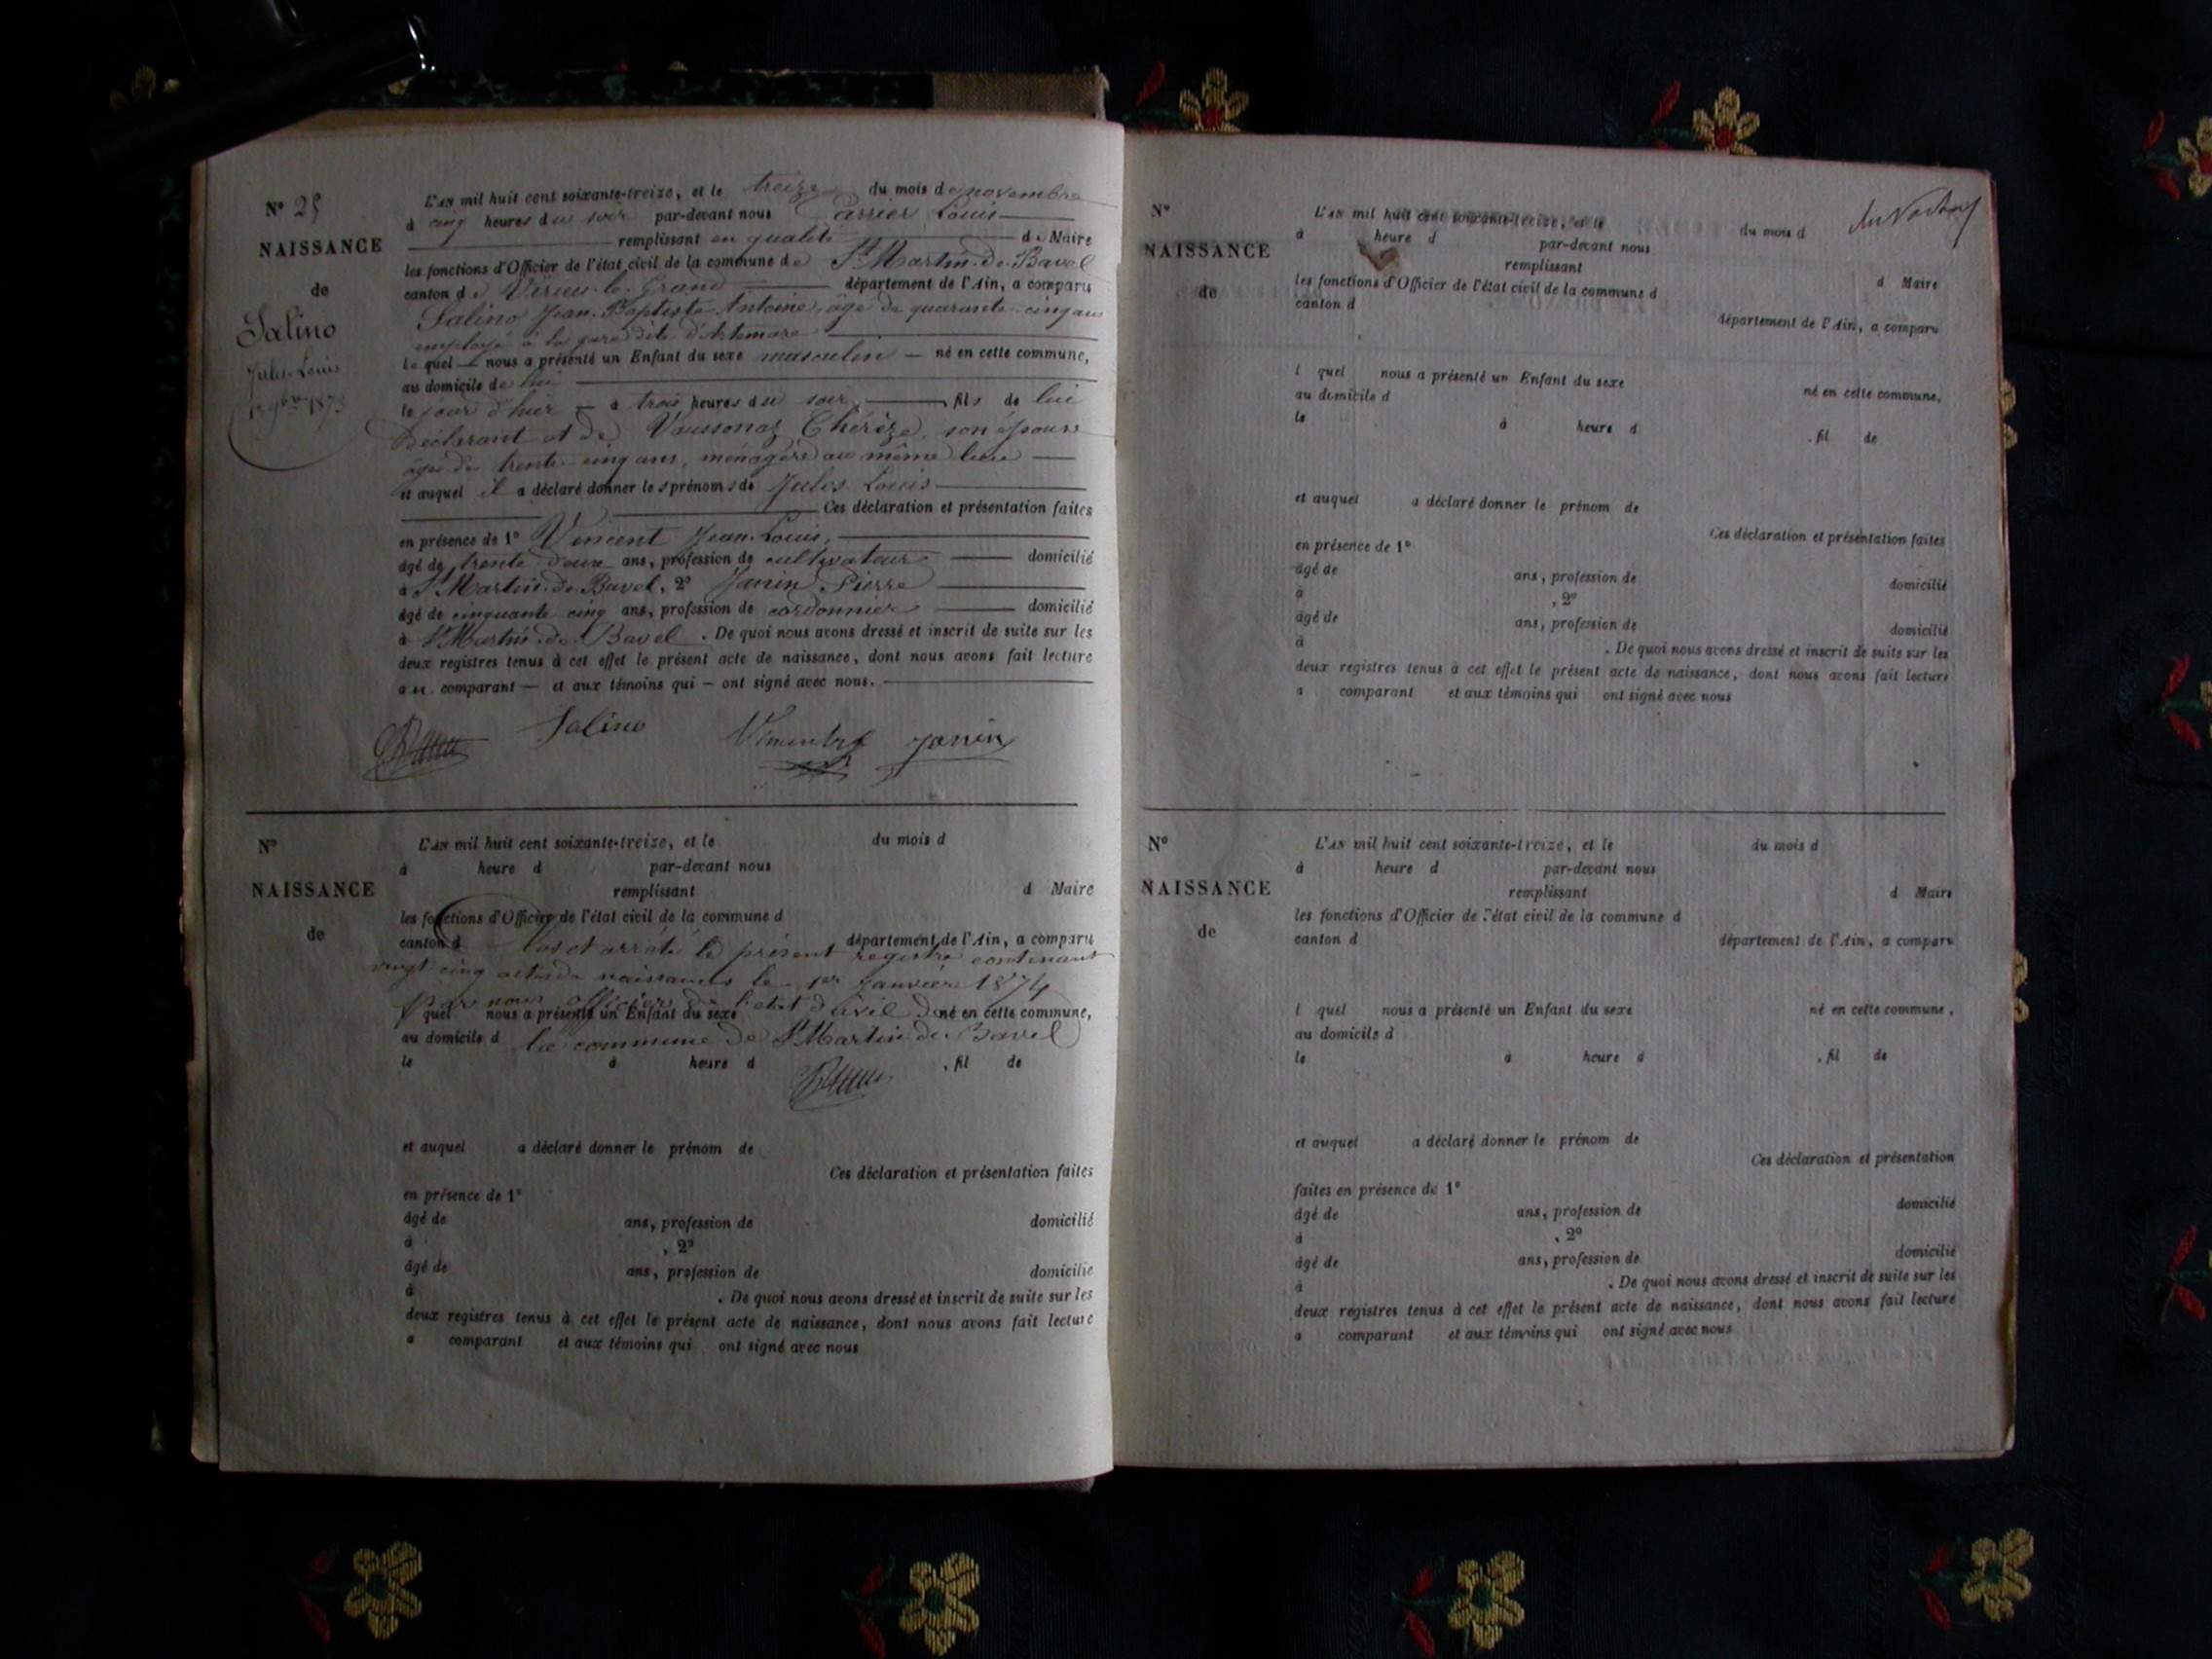 N° 25
NAISSANCE
de
Salino
Jules Louis
13 9bre 1873
L'AN mil huit cent soixante-treize, et le treize du mois de novembre
à cinq heures du soir par-devant nous Carrier Louis
remplissant en qualité de Maire
les fonctions d'Officier de l'état civil de la commune de St Martin-de-Bavel
canton de Virieu-le-Grand département de l'Ain, a comparu
Salino Jean-Baptiste Antoine, âgé de quarante-cinq ans
employé à la gare dite d'Artemare
lequel nous a présenté un Enfant du sexe masculin — né en cette commune,
au domicile de lui
le jour d'hier — à trois heures du soir, fils de lui
Déclarant et de Vaussonaz Thérèze, son épouse
âgée de trente-cinq ans, ménagère au même lieu —
et auquel il a déclaré donner les prénoms de Jules Louis
Ces déclaration et présentation faites
en présence de 1° Vincent Jean-Louis,
âgé de trente deux ans, profession de cultivateur — domicilié
à St Martin-de-Bavel, 2° Janin Pierre
âgé de cinquante cinq ans, profession de cordonnier — domicilié
à St Martin-de-Bavel. De quoi nous avons dressé et inscrit de suite sur les
deux registres tenus à cet effet le présent acte de naissance, dont nous avons fait lecture
au comparant — et aux témoins qui — ont signé avec nous.
Salino Janin
N°
NAISSANCE
de
L'AN mil huit cent soixante-treize, et le du mois d
à heure d par-devant nous
remplissant d Maire
les fonctions d'Officier de l'état civil de la commune d
canton d département de l'Ain, a comparu
Clos et arrêté le présent registre contenant
vingt cinq actes de naissances le 1er Janvier 1874
Par nous officier de l'état civil de
l quel nous a présenté un Enfant du sexe né en cette commune,
au domicile d
la commune de St Martin de Bavel
le à heure d , fil de
et auquel a déclaré donner le prénom de
Ces déclaration et présentation faites
en présence de 1°
âgé de ans, profession de domicilié
à , 2°
âgé de ans, profession de domicilié
à . De quoi nous avons dressé et inscrit de suite sur les
deux registres tenus à cet effet le présent acte de naissance, dont nous avons fait lecture
a comparant et aux témoins qui ont signé avec nous
N°
NAISSANCE
de
L'AN mil huit cent soixante-treize, et le du mois d
à heure d par-devant nous
remplissant d Maire
les fonctions d'Officier de l'état civil de la commune d
canton d département de l'Ain, a comparu
l quel nous a présenté un Enfant du sexe né en cette commune,
au domicile d
le à heure d , fil de
et auquel a déclaré donner le prénom de
Ces déclaration et présentation faites
en présence de 1°
âgé de ans, profession de domicilié
à , 2°
âgé de ans, profession de domicilié
à . De quoi nous avons dressé et inscrit de suite sur les
deux registres tenus à cet effet le présent acte de naissance, dont nous avons fait lecture
a comparant et aux témoins qui ont signé avec nous
N°
NAISSANCE
de
L'AN mil huit cent soixante-treize, et le du mois d
à heure d par-devant nous
remplissant d Maire
les fonctions d'Officier de l'état civil de la commune d
canton d département de l'Ain, a comparu
l quel nous a présenté un Enfant du sexe né en cette commune,
au domicile d
le à heure d , fil de
et auquel a déclaré donner le prénom de
Ces déclaration et présentation
faites en présence de 1° domicilié
âgé de ans, profession de
à , 2°
âgé de ans, profession de domicilié
à . De quoi nous avons dressé et inscrit de suite sur les
deux registres tenus à cet effet le présent acte de naissance, dont nous avons fait lecture
a comparant et aux témoins qui ont signé avec nous